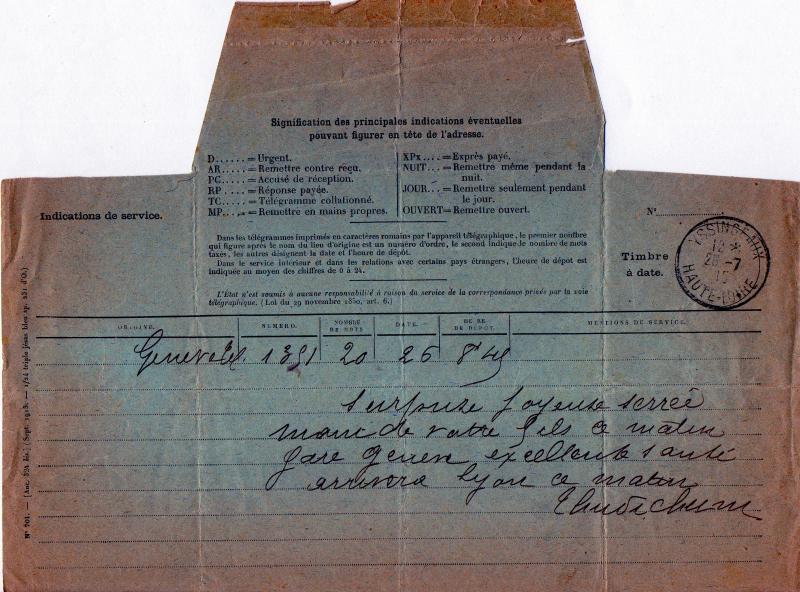 Signification des principales indications éventuelles
pouvant figurer en tête de l'adresse.
D......=Urgent.
AR.....=Remettre contre reçu.
PC.....=Accusé de réception.
RP.....=Réponse payée.
TC.....=Télégramme collationné.
MP.....=Remettre en mains propres.
XPx....=Exprès payé.
NUIT...=Remettre même pendant la
nuit.
JOUR...=Remettre seulement pendant
le jour.
OUVERT=Remettre ouvert.
Indications de service.
N°
Timbre
à date.
YSSINGEAUX
12 *
26-7
15
HAUTE-LOIRE
Dans les télégrammes imprimés en caractères romains par l'appareil télégraphique, le premier nombre
qui figure après le nom du lieu d'origine est un numéro d'ordre, le second indique le nombre de mots
taxés, les autres désignent la date et l'heure de dépôt.
Dans le service intérieur et dans les relations avec certains pays étrangers, l'heure de dépôt est
indiquée au moyen des chiffres de 0 à 24.
L'État n'est soumis à aucune responsabilité à raison du service de la correspondance privée par la voie
télégraphique. (Loi du 29 novembre 1850, art. 6.)
ORIGINE. NUMÉRO. NOMBRE DE MOTS DATE. DE DÉPOT. MENTIONS DE SERVICE.
1391 20 26 8 45
surprise joyeuse serré
main de votre fils ce matin
gare Genève excellente santé
arrivera Lyon ce matin
N° 701.